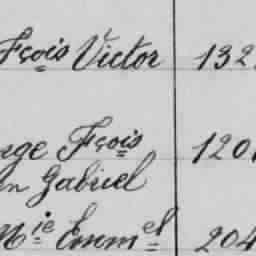 Fçois Victor 132
nge Fçois 120
n Gabriel
Mie Emmel 204